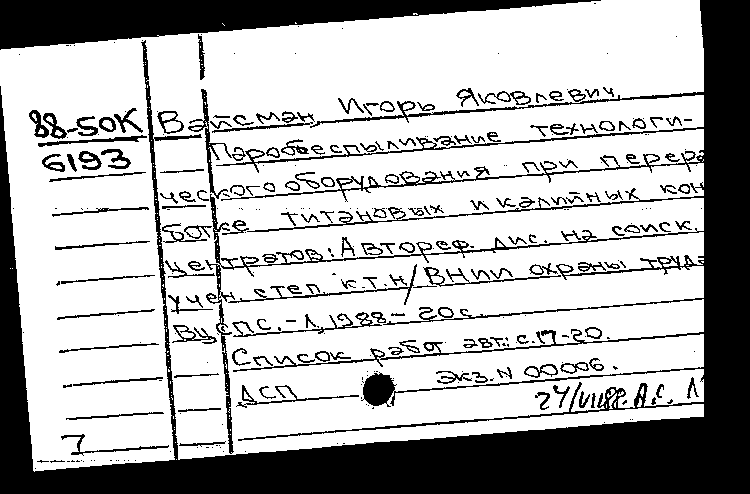 88-50К
6193
Вайсман, Игорь Яковлевич.
Паробеспыливание технологи-
ческого оборудования при перера
ботке титановых и калийных кон
центратов: Автореф. дис. на соиск.
учен. степ. к.т.н/ВНИИ охраны труда
ВЦСПС.-Л, 1988.-20с.
Список работ авт.: с.17-20.
ДСП Экз. N 00006.
24/VII88. А.С.
7